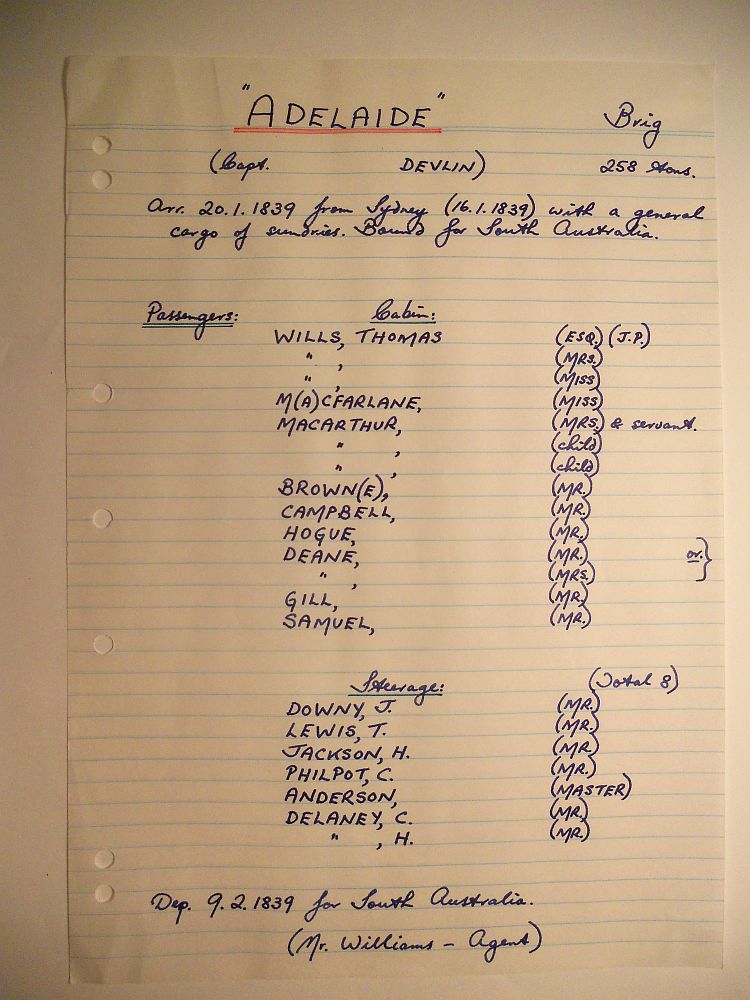 "ADELAIDE" Brig
(Capt. DEVLIN) 258 tons.
Arr. 20.1.1839 from Sydney (16.1.1839) with a general
cargo of sundries. Bound for South Australia.
Passengers: Cabin:
WILLS, THOMAS (ESQ.) (J.P.)
" , (MRS.)
" , (MISS)
M(A)CFARLANE, (MISS)
MACARTHUR, (MRS.) & servant.
" , (child)
" , (child)
BROWN(E), (MR.)
CAMPBELL, (MR.)
HOGUE, (MR.)
DEANE, (MR.) or. }
" , (MRS.)
GILL, (MR.)
SAMUEL, (MR.)
Steerage: (Total 8)
DOWNY, J. (MR.)
LEWIS, T. (MR.)
JACKSON, H. (MR.)
PHILPOT, C. (MR.)
ANDERSON, (MASTER)
DELANEY, C. (MR.)
" , H. (MR.)
Dep. 9.2.1839 for South Australia.
(Mr. Williams - Agent)